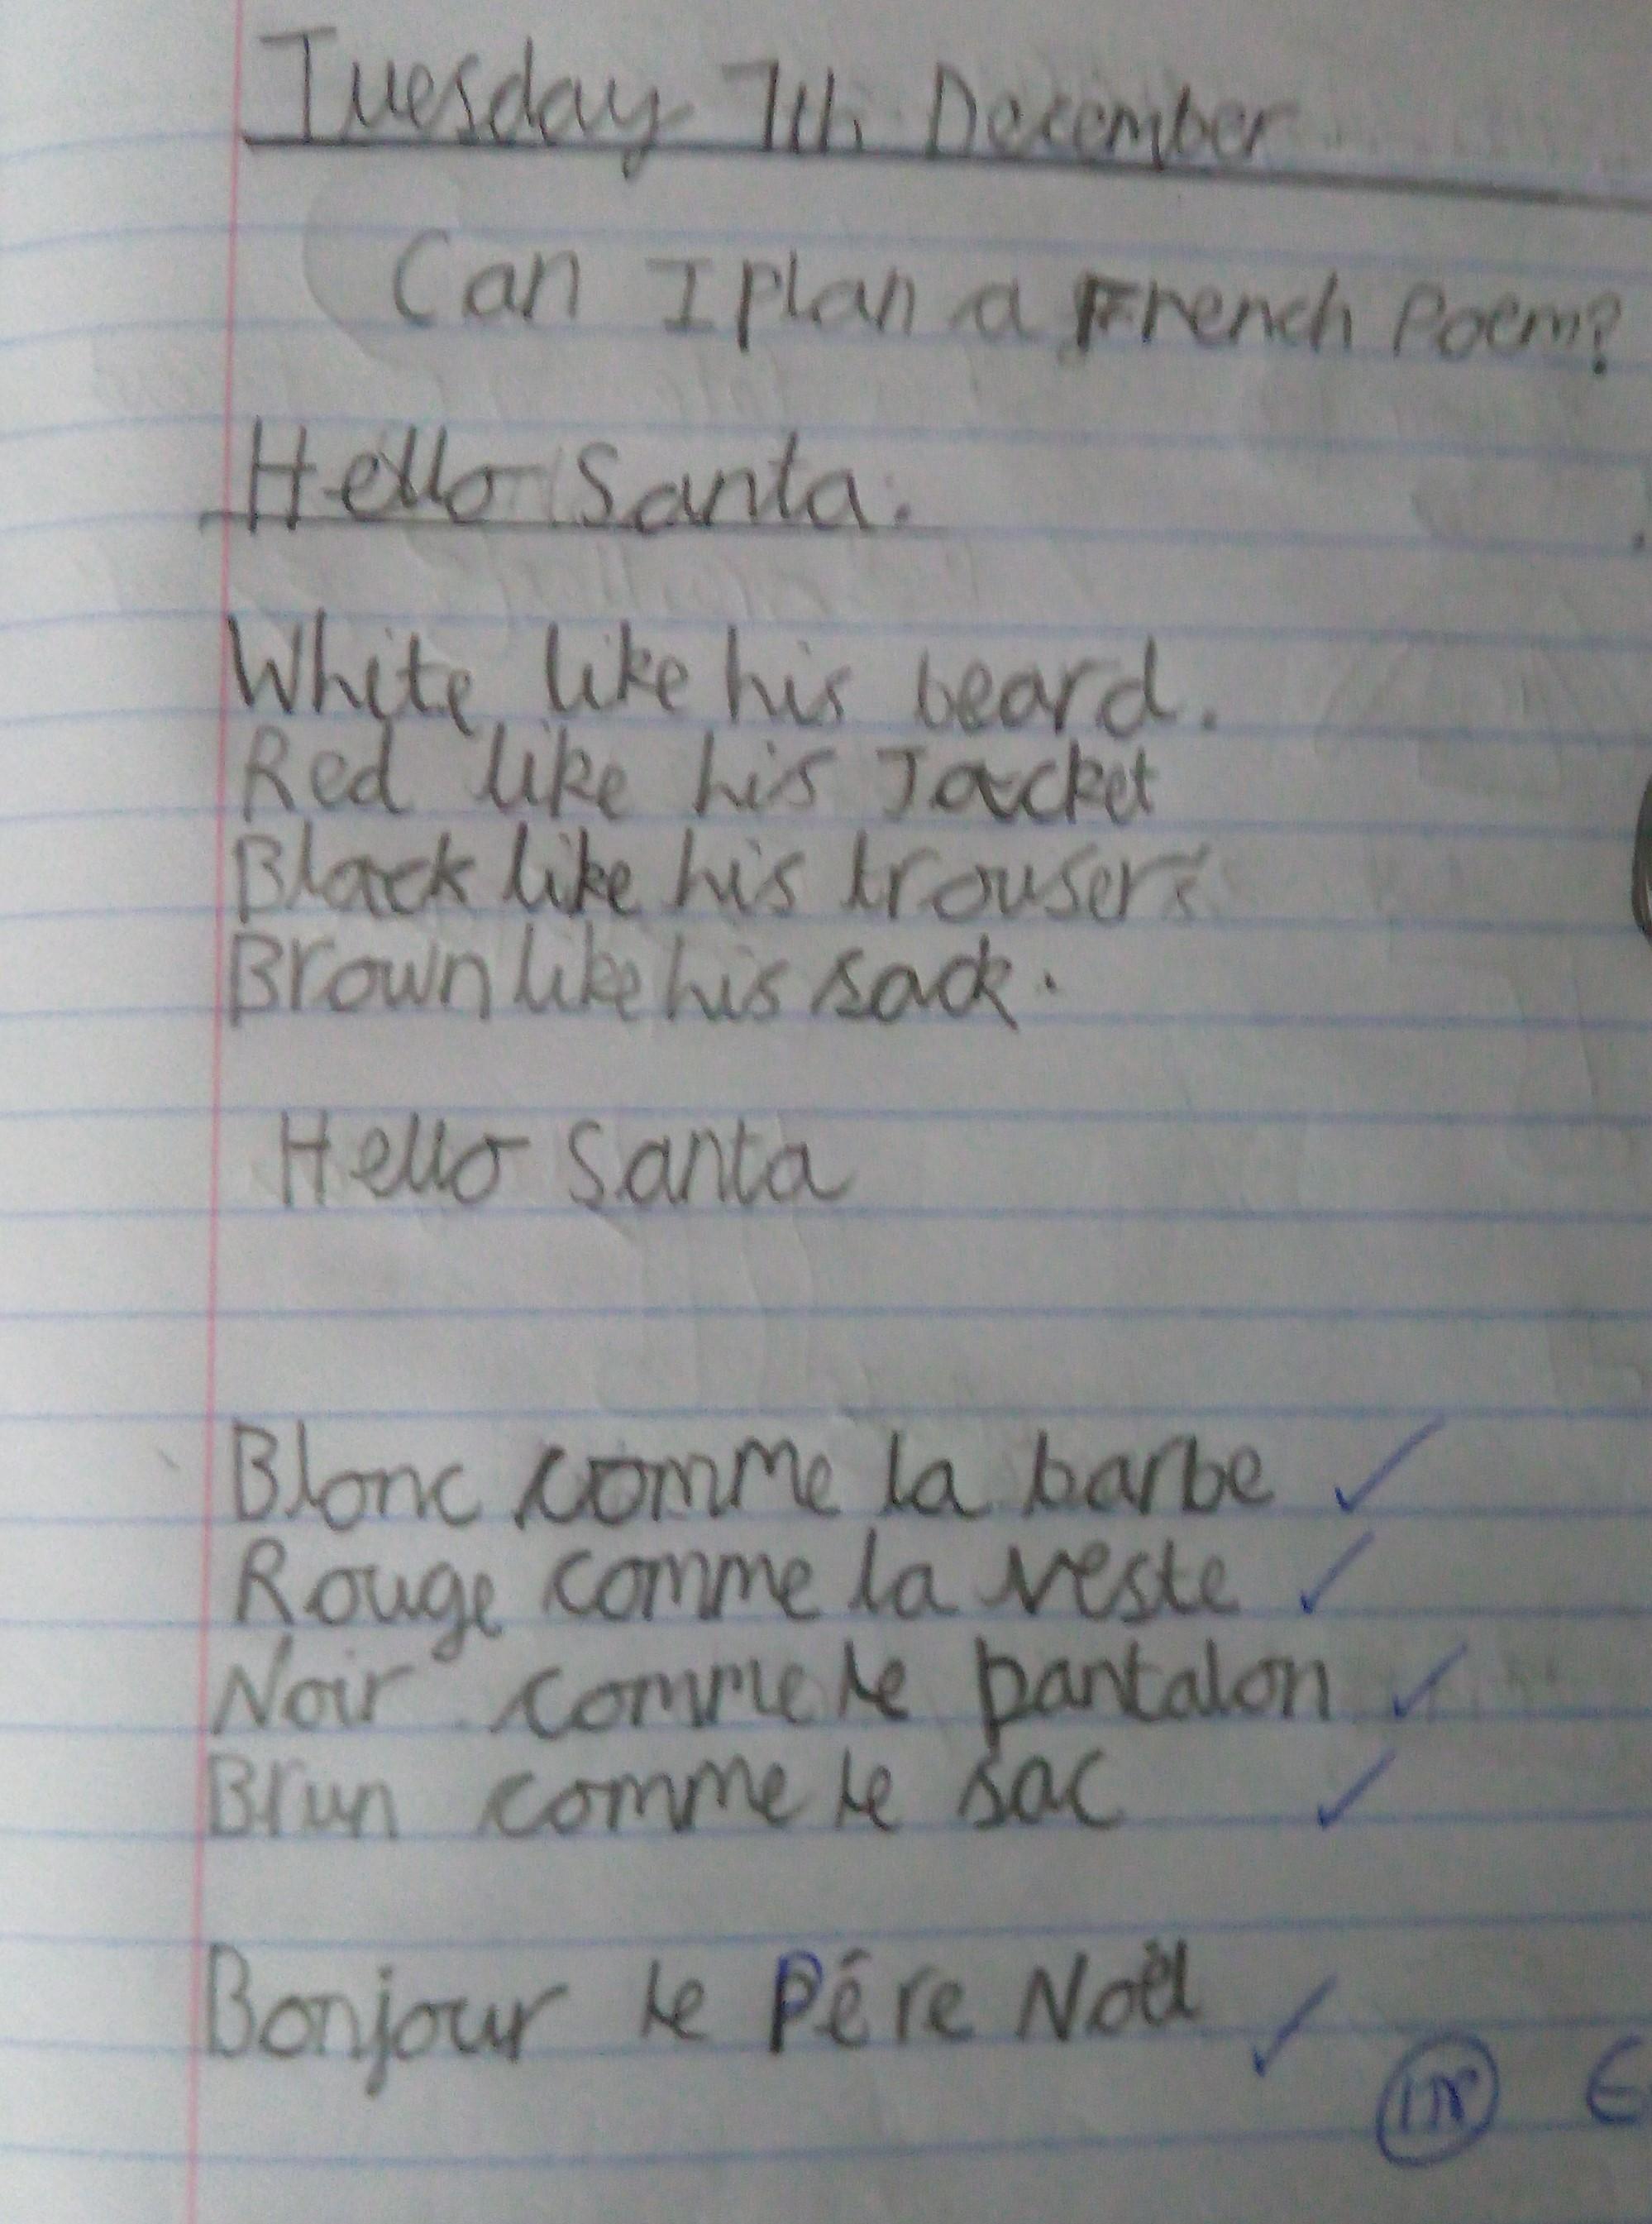 Tuesday 7th December
Can I plan a French Poem?
Hello Santa.
White like his beard.
Red like his Jacket
Black like his trousers
Brown like his sack.
Hello Santa
Blanc comme la barbe
Rouge comme la veste
Noir comme le pantalon
Brun comme le sac
Bonjour le Pére Noël